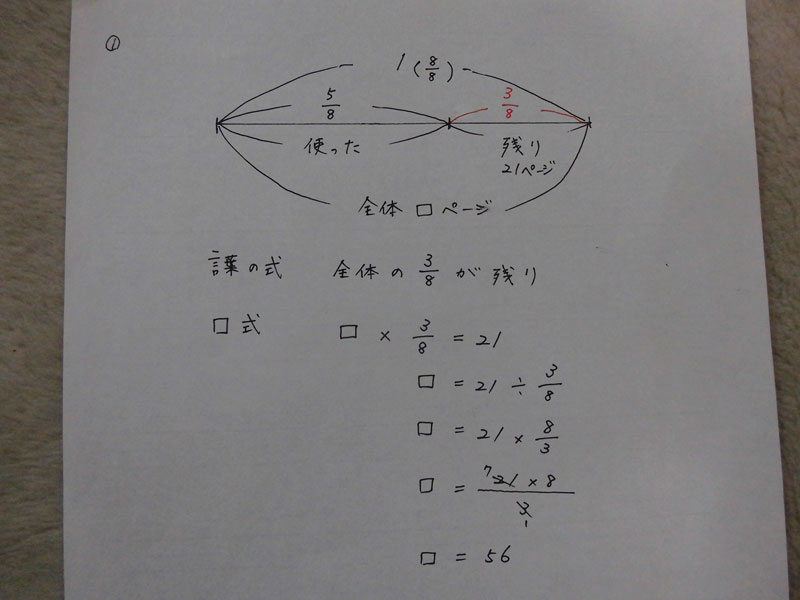 ①
1 (8/8)
5/8 3/8
使った 残り
21ページ
全体 □ ページ
言葉の式 全体の 3/8 が 残り
□式 □ × 3/8 = 21
□ = 21 ÷ 3/8
□ = 21 × 8/3
□ = 7 21 × 8 / 3 1
□ = 56